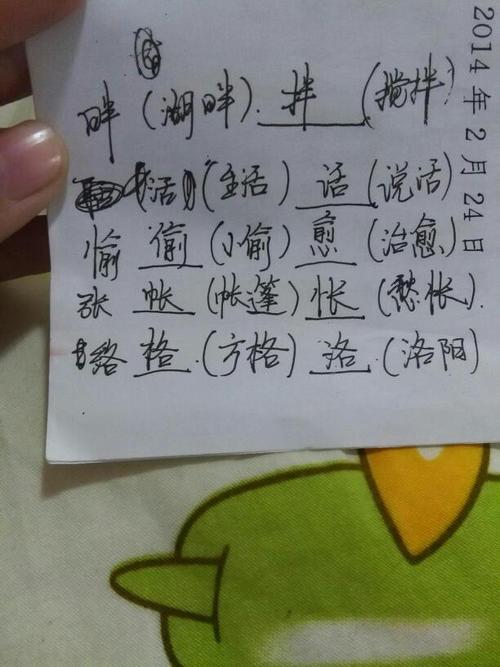 2014年2月24日
畔 (湖畔). 拌 (搅拌)
(活) (生活) 话 (说话)
愉 偷 (小偷) 愈 (治愈)
张 帐 (帐篷) 怅 (愁怅).
络 格. (方格) 洛. (洛阳)